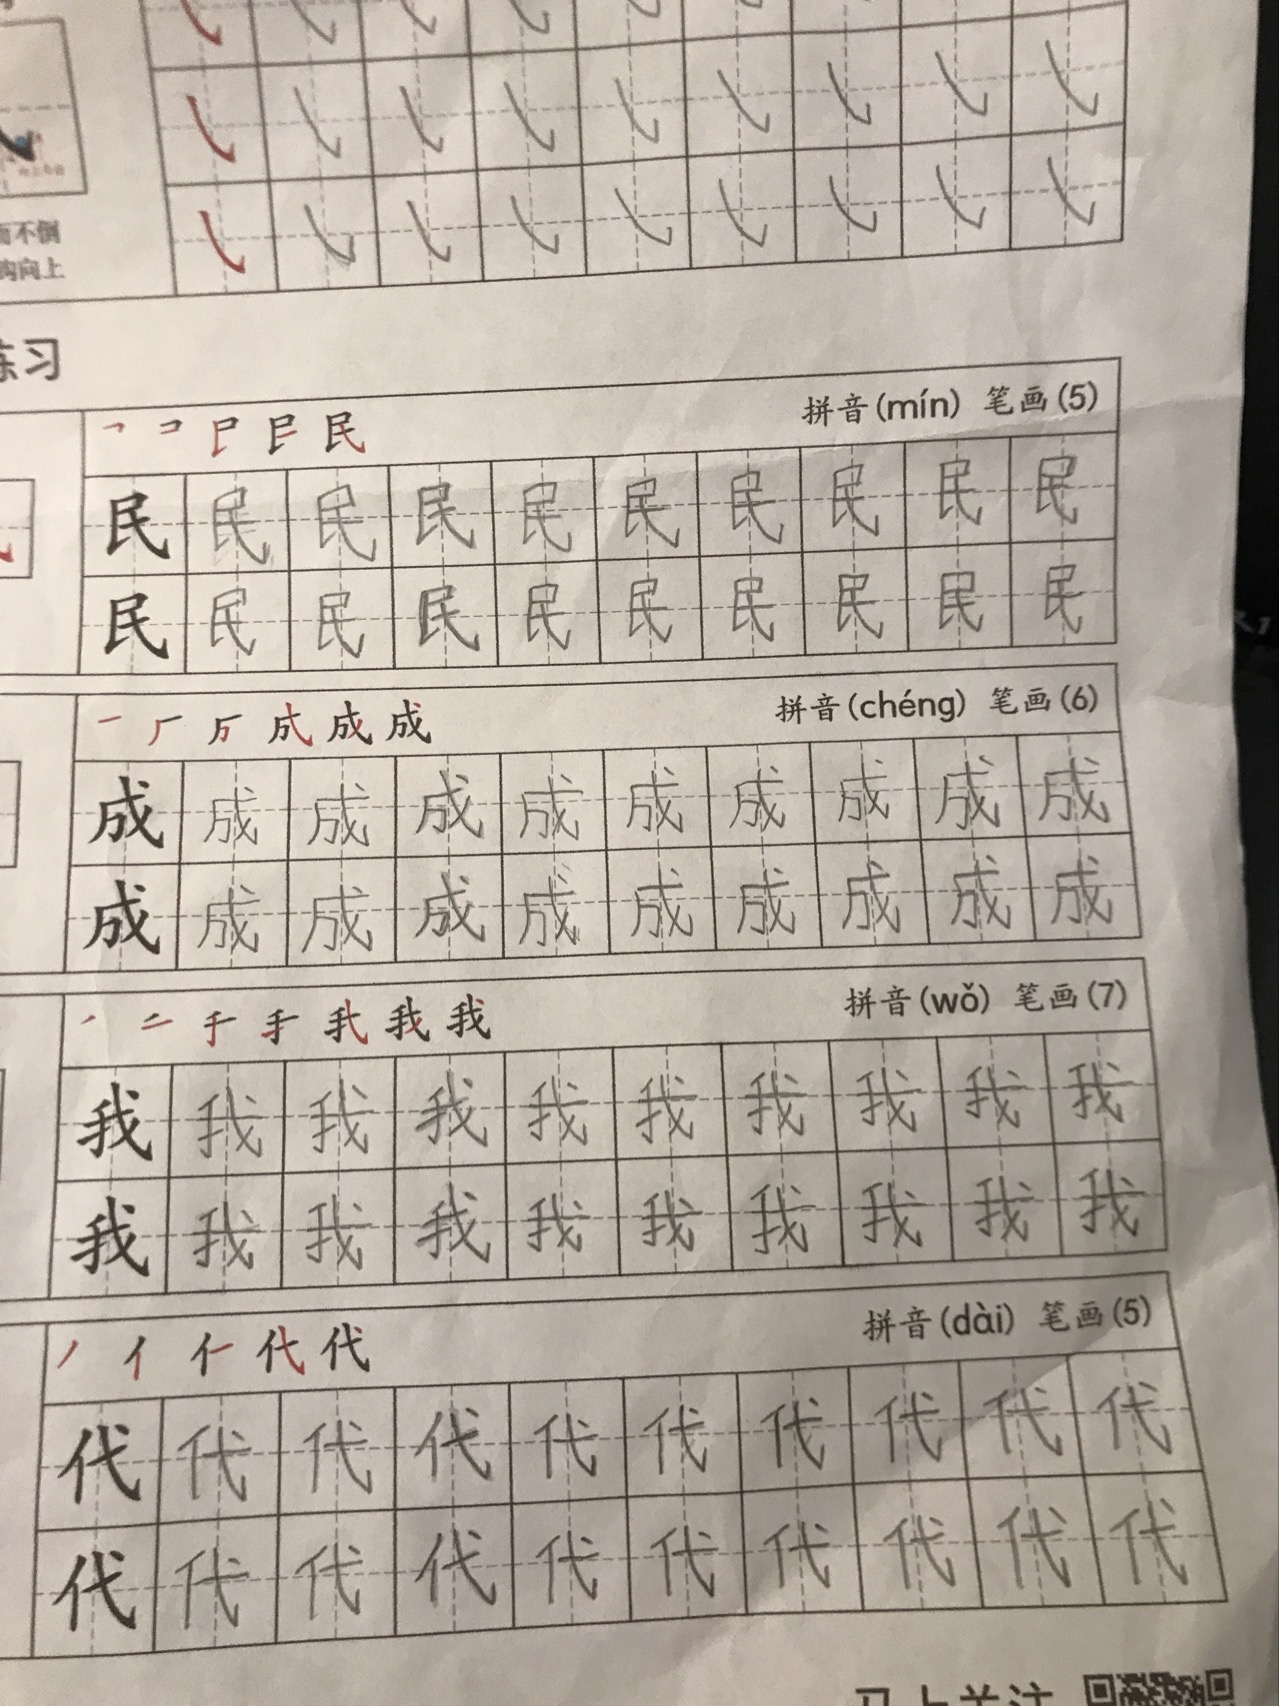 而不倒
钩向上
练习
民 拼音(mín) 笔画(5)
民 民 民 民 民 民 民 民 民 民
民 民 民 民 民 民 民 民 民 民
一 厂 成 成 成 拼音(chéng) 笔画(6)
成 成 成 成 成 成 成 成 成 成
成 成 成 成 成 成 成 成 成 成
手 我 我 拼音(wǒ) 笔画(7)
我 我 我 我 我 我 我 我 我 我
我 我 我 我 我 我 我 我 我 我
丿 亻 代 代 拼音(dài) 笔画(5)
代 代 代 代 代 代 代 代 代 代
代 代 代 代 代 代 代 代 代 代
马上关注